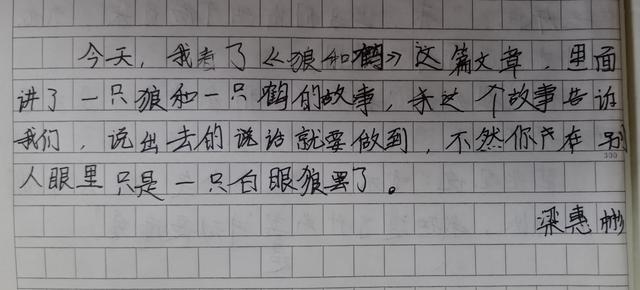 今天，我看了《狼和鹤》这篇文章，里面
讲了一只狼和一只鹤的故事，这个故事告诉
我们，说出去的说话就要做到，不然你在别
人眼里只是一只白眼狼罢了。
梁惠彬